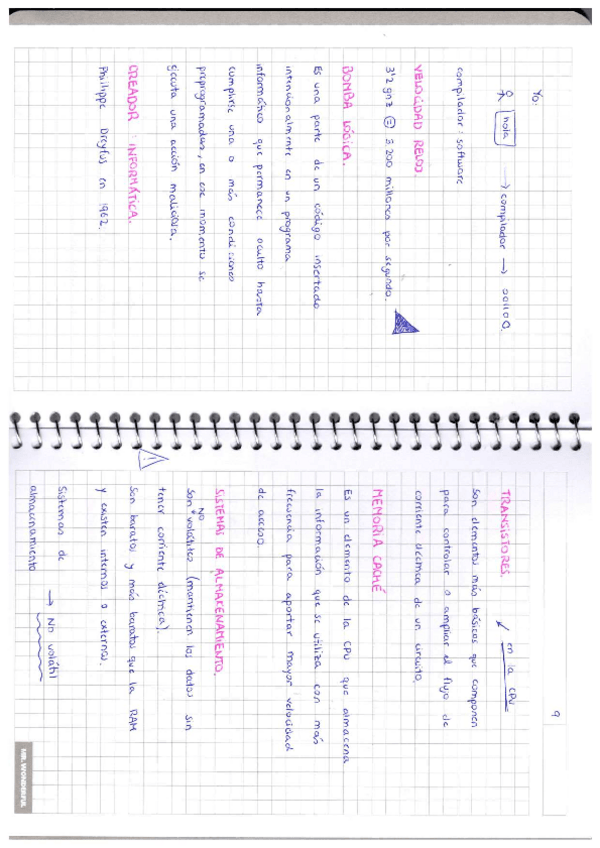 Yo:
hola → compilador → 001100.
compilador: software
VELOCIDAD RELOJ.
3'2 gHz = 3.200 millones por segundo.
BOMBA LÓGICA.
Es una parte de un código insertado
intencionalmente en un programa
informático que permanece oculto hasta
cumplirse una o más condiciones
preprogramadas, en ese momento se
ejecuta una acción maliciosa.
CREADOR INFORMÁTICA.
Philippe Dreyfus en 1962.
9
TRANSISTORES. en la CPU
Son elementos más básicos que componen
para controlar o ampliar el flujo de
corriente eléctrica de un circuito.
MEMORIA CACHÉ
Es un elemento de la CPU que almacena
la información que se utiliza con más
frecuencia para aportar mayor velocidad
de acceso.
SISTEMAS DE ALMACENAMIENTO.
Son NO volátiles (mantienen los datos sin
tener corriente eléctrica).
Son baratos y más baratos que la RAM
y existen internos o externos.
Sistemas de
almacenamiento → No volátil
MR. WONDERFUL